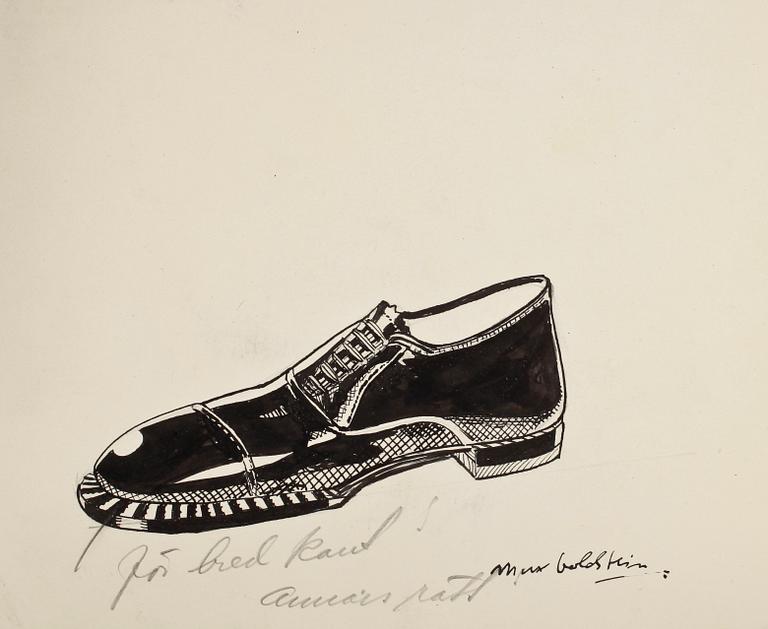 för bred kant!
annars rätt
Max Goldstein.